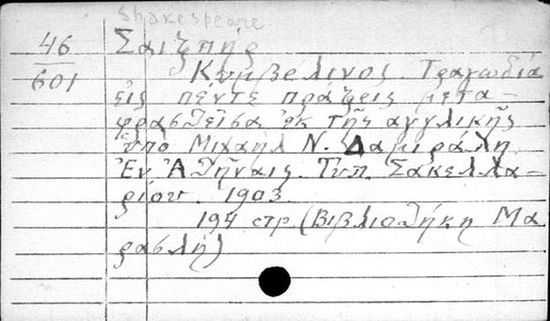 Shakespeare
46 Σαιξπήρ
601 Κυμβελίνος. Τραγωδία
εἰς πέντε πράξεις μετα-
φρασθεῖσα ἐκ τῆς αγγλικῆς
ὑπὸ Μιχαήλ Ν. Δαμιράλη
Ἐν Ἀθήναις. Τυπ. Σακελλα-
ρίου. 1903
194 στρ (Βιβλιοθήκη Μα
ρασλή)